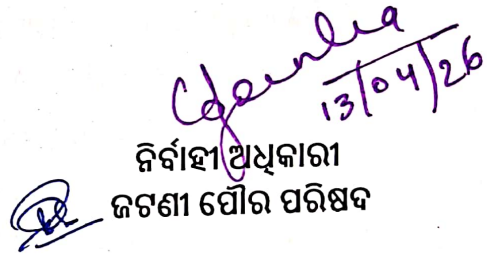 13/04/26
ନିର୍ବାହୀ ଅଧିକାରୀ
ଜଟଣୀ ପୌର ପରିଷଦ